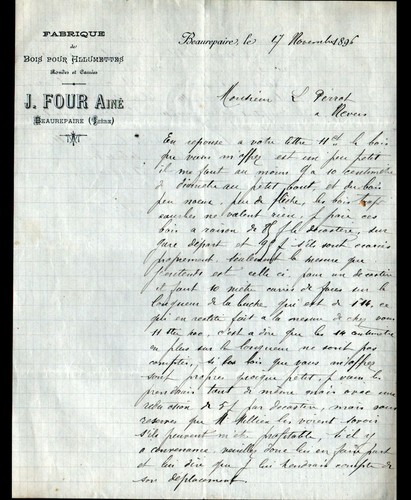 FABRIQUE
de
BOIS POUR ALLUMETTES
Rondes et Carrées
J. FOUR AINÉ
BEAUREPAIRE (Isère)
Beaurepaire, le 17 Novembre 1896
Monsieur L Perrot
a
En reponse a votre lettre 11 ct le bois
que vous m'offrez est un peu petit
il me faut au moins 9 a 10 centimètres
de diametre au petit bout, et du bois
peu noeux, peu de flèche, les bois trop
ne valent rien, je paie ces
bois a raison de le decastère, sur
gare depart et s'ils sont ecorcés
proprement. seulement la mesure que
j'entends est celle ci, pour un decastère
il faut 10 metre carrés de faces sur la
longueur de la buche qui est de 1.14, ce
qui en realité fait a la mesure de chez vous
11 ttes 400. c'est a dire que les 14 centimètres
en plus sur la longueur ne sont pas
comptés, si les bois que vous m'offrez
sont propres quoique petit, je vous les
prendrais tout de même mais avec une
reduction de 5 f par decastère, mais sous
reserves que Mr les voient savoir
s'ils peuvent m'etre profitable, si il y
a convenance veuillez donc lui en faire part
et lui dire que je lui tiendrai compte de
son deplacement